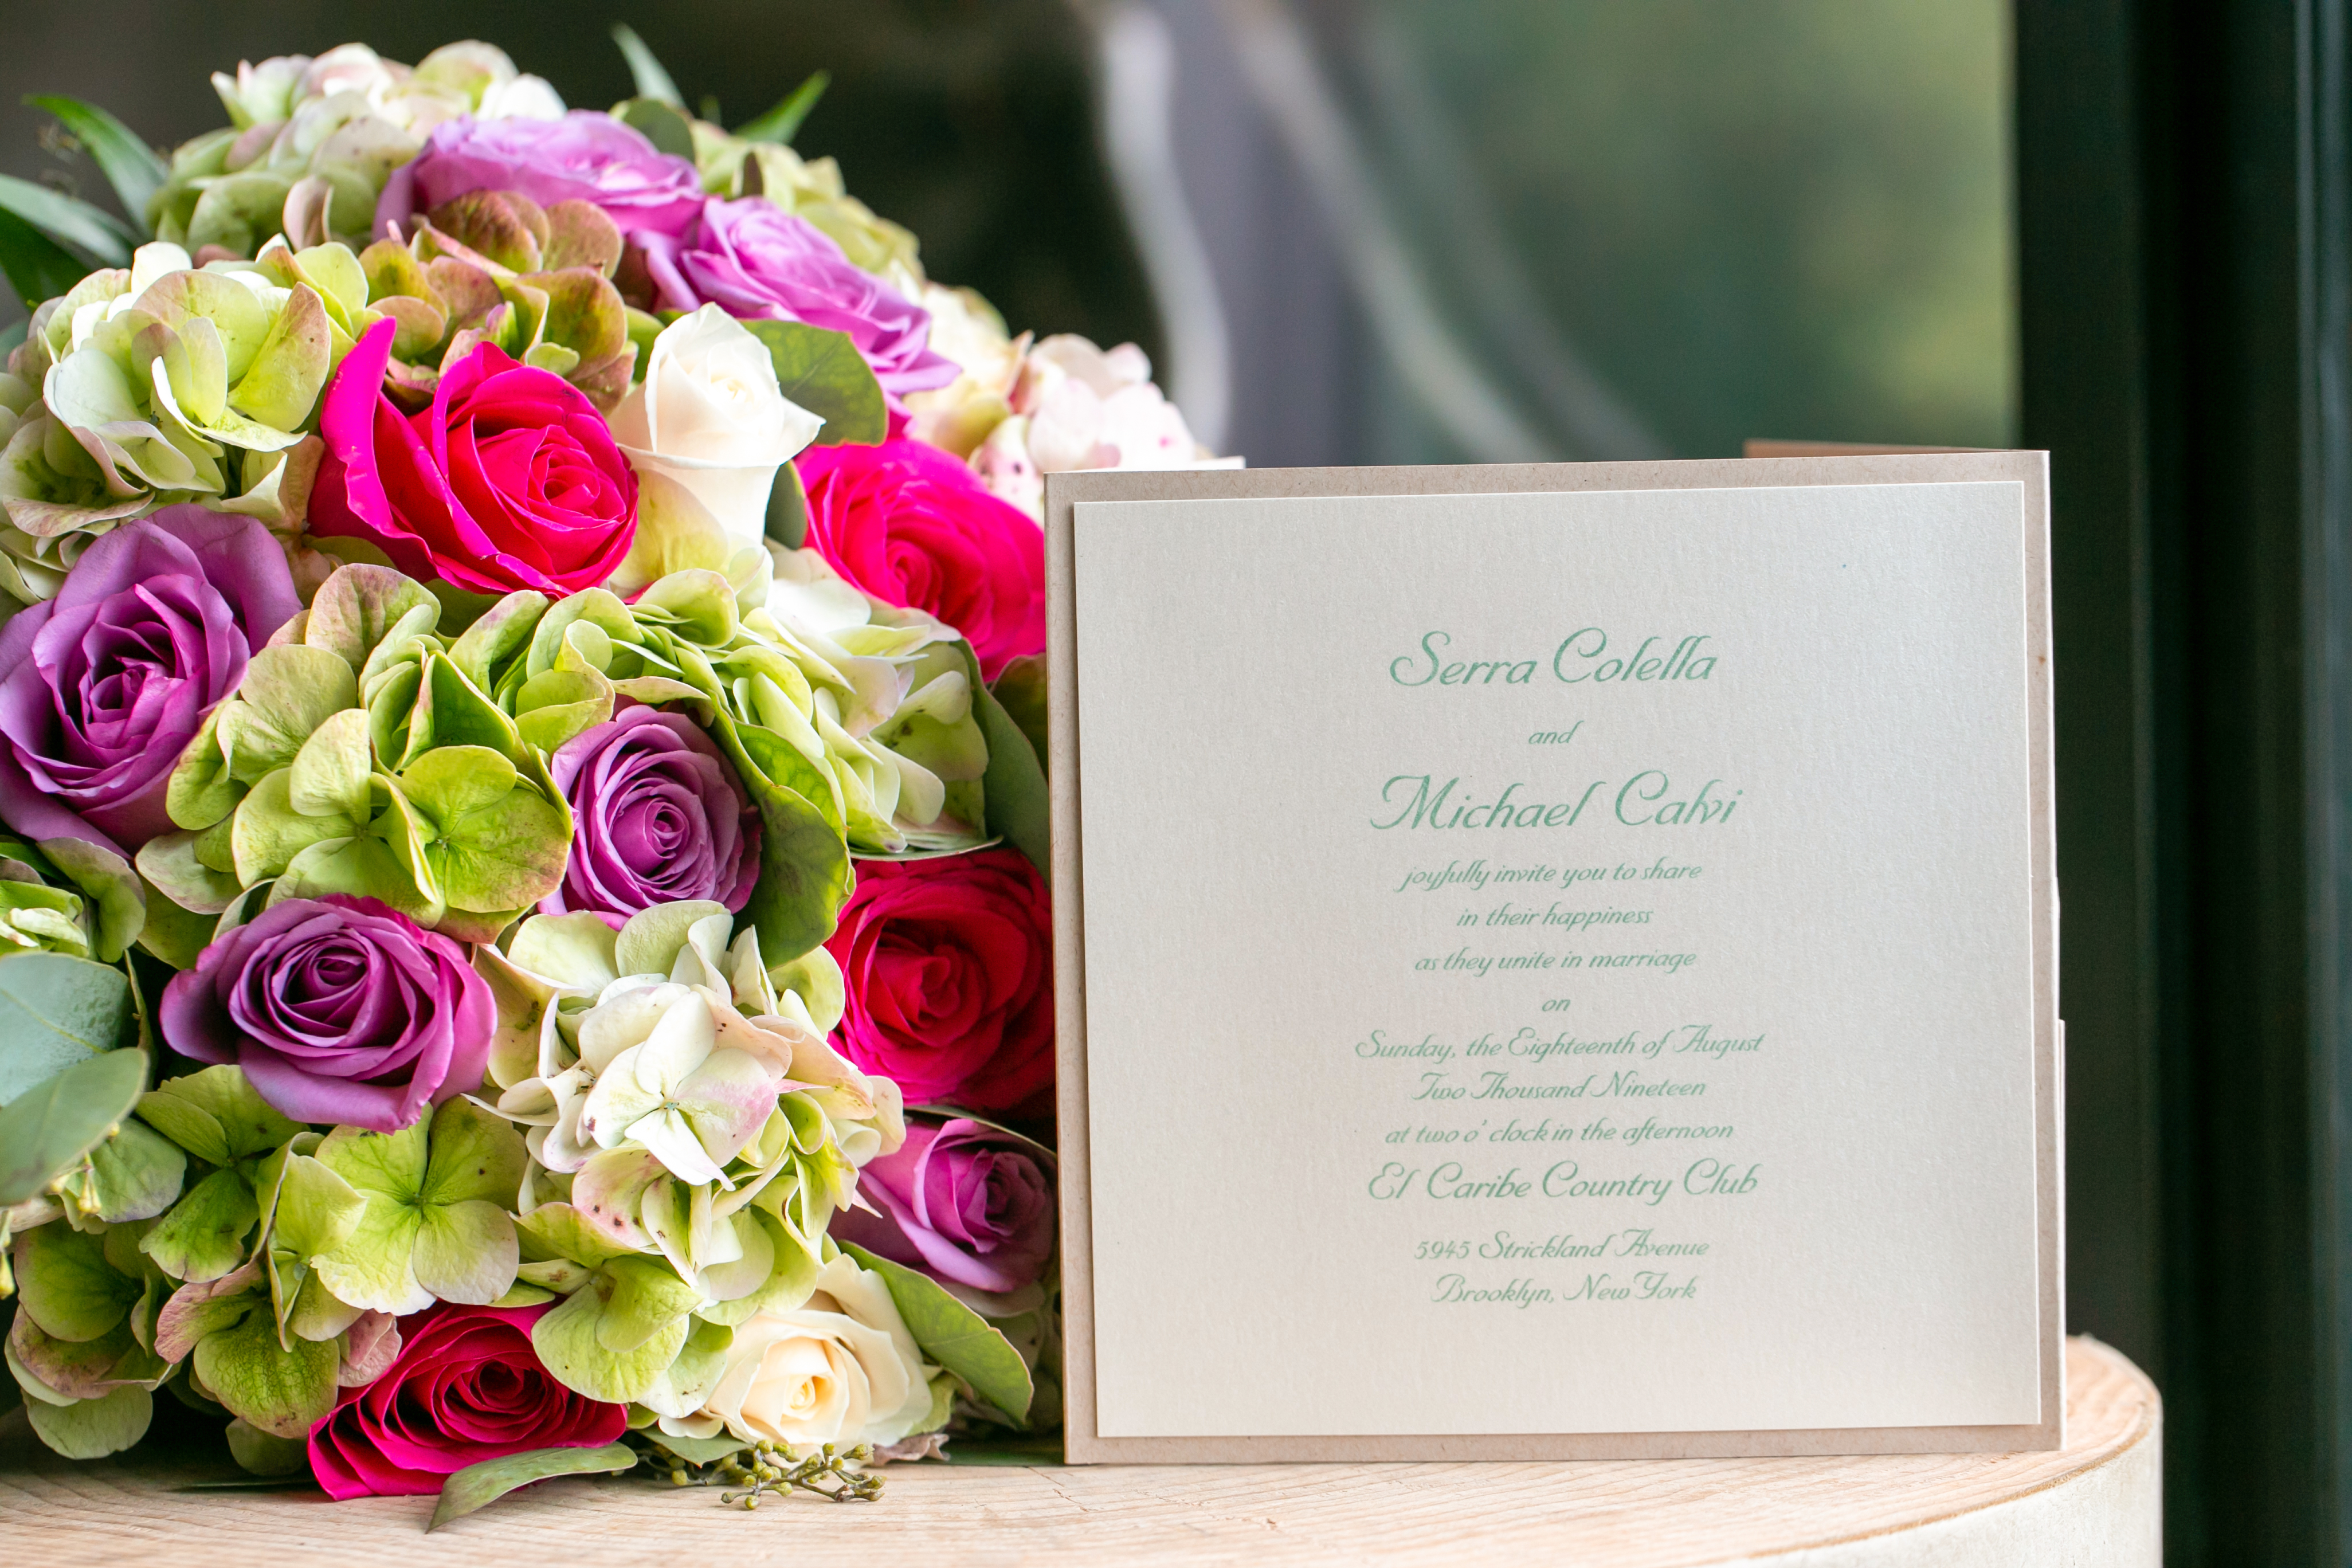 Serra Colella
and
Michael Calvi
joyfully invite you to share
in their happiness
as they unite in marriage
on
Sunday, the Eighteenth of August
Two Thousand Nineteen
at two o' clock in the afternoon
El Caribe Country Club
5945 Strickland Avenue
Brooklyn, New York